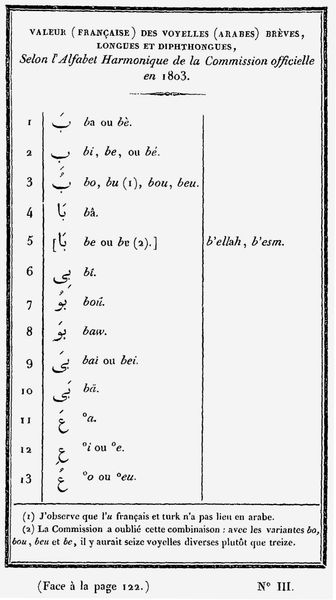 VALEUR (FRANÇAISE) DES VOYELLES (ARABES) BRÈVES,
LONGUES ET DIPHTHONGUES,
Selon l'Alfabet Harmonique de la Commission officielle
en 1803.
1 بَ ba ou bè.
2 بِ bi, be, ou bé.
3 بُ bo, bu (1), bou, beu.
4 بَا bâ.
5 [بَا be ou bɐ (2).] b'ellah, b'esm.
6 بِى bî.
7 بُو boû.
8 بَو baw.
9 بَي bai ou bei.
10 بَى bā.
11 عَ °a.
12 عِ °i ou °e.
13 عُ °o ou °eu.
(1) J'observe que l'u français et turk n'a pas lieu en arabe.
(2) La Commission a oublié cette combinaison : avec les variantes bo,
bou, beu et be, il y aurait seize voyelles diverses plutôt que treize.
(Face à la page 122.) N° III.